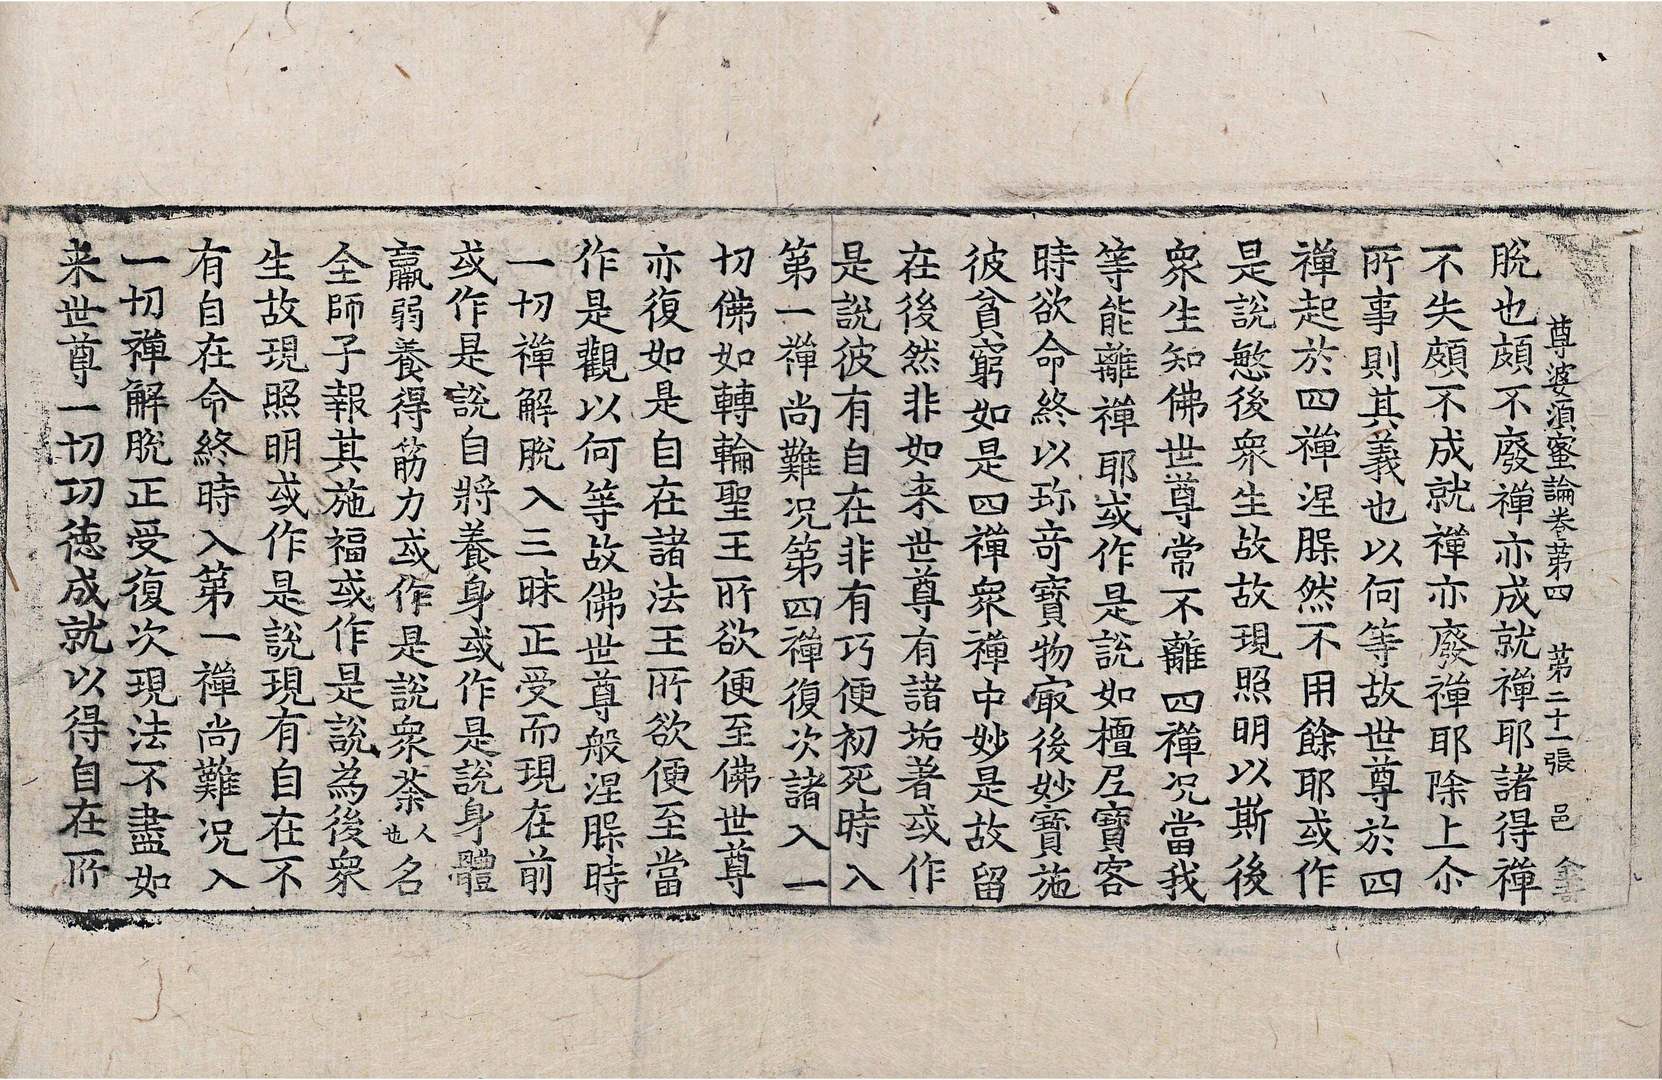 尊婆須蜜論卷第四　第二十一張　邑
脫也頗不廢禪亦成就禪耶諸得禪
不失頗不成就禪亦廢禪耶除上尒
所事則其義也以何等故世尊於四
禪起於四禪涅槃然不用餘耶或作
是說愍後衆生故故現照明以斯後
衆生知佛世尊常不離四禪況當我
等能離禪耶或作是說如檀尼寶客
時欲命終以珎奇寶物㝡後妙寶施
彼貧窮如是四禪衆禪中妙是故留
在後然非如来世尊有諸垢著或作
是說彼有自在非有巧便初死時入
第一禪尚難況第四禪復次諸入一
切佛如轉輪聖王所欲便至佛世尊
亦復如是自在諸法王所欲便至當
作是觀以何等故佛世尊般涅槃時
一切禪解脫入三昧正受而現在前
或作是說自將養身或作是說身體
羸弱養得筋力或作是說衆荼人也名
全師子報其施福或作是說為後衆
生故現照明或作是說現有自在不
有自在命終時入第一禪尚難況入
一切禪解脫正受復次現法不盡如
来世尊一切功德成就以得自在所